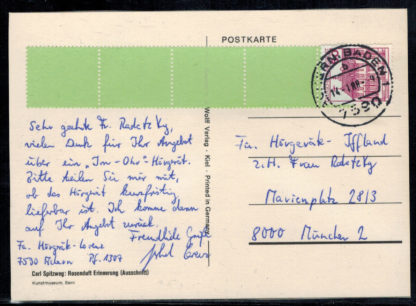 POSTKARTE
ACHERN, BADEN 1
7590
Sehr geehrte Fr. Radetzky,
vielen Dank für Ihr Angebot
über ein "Im-Ohr"-Hörgerät.
Bitte teilen Sie mir mit,
ob das Hörgerät kurzfristig
lieferbar ist. Ich komme dann
auf Ihr Angebot zurück.
Freundliche Grüße
Fa. Hörgerät-Lorenz
7590 Achern Pf. 1307
Carl Spitzweg: Rosenduft Erinnerung (Ausschnitt)
Kunstmuseum, Bern
Wolff Verlag · Kiel · Printed in Germany
Fa. Hörgerät-Iffland
z.H. Frau Radetzky
Marienplatz 28/3
8000 München 2